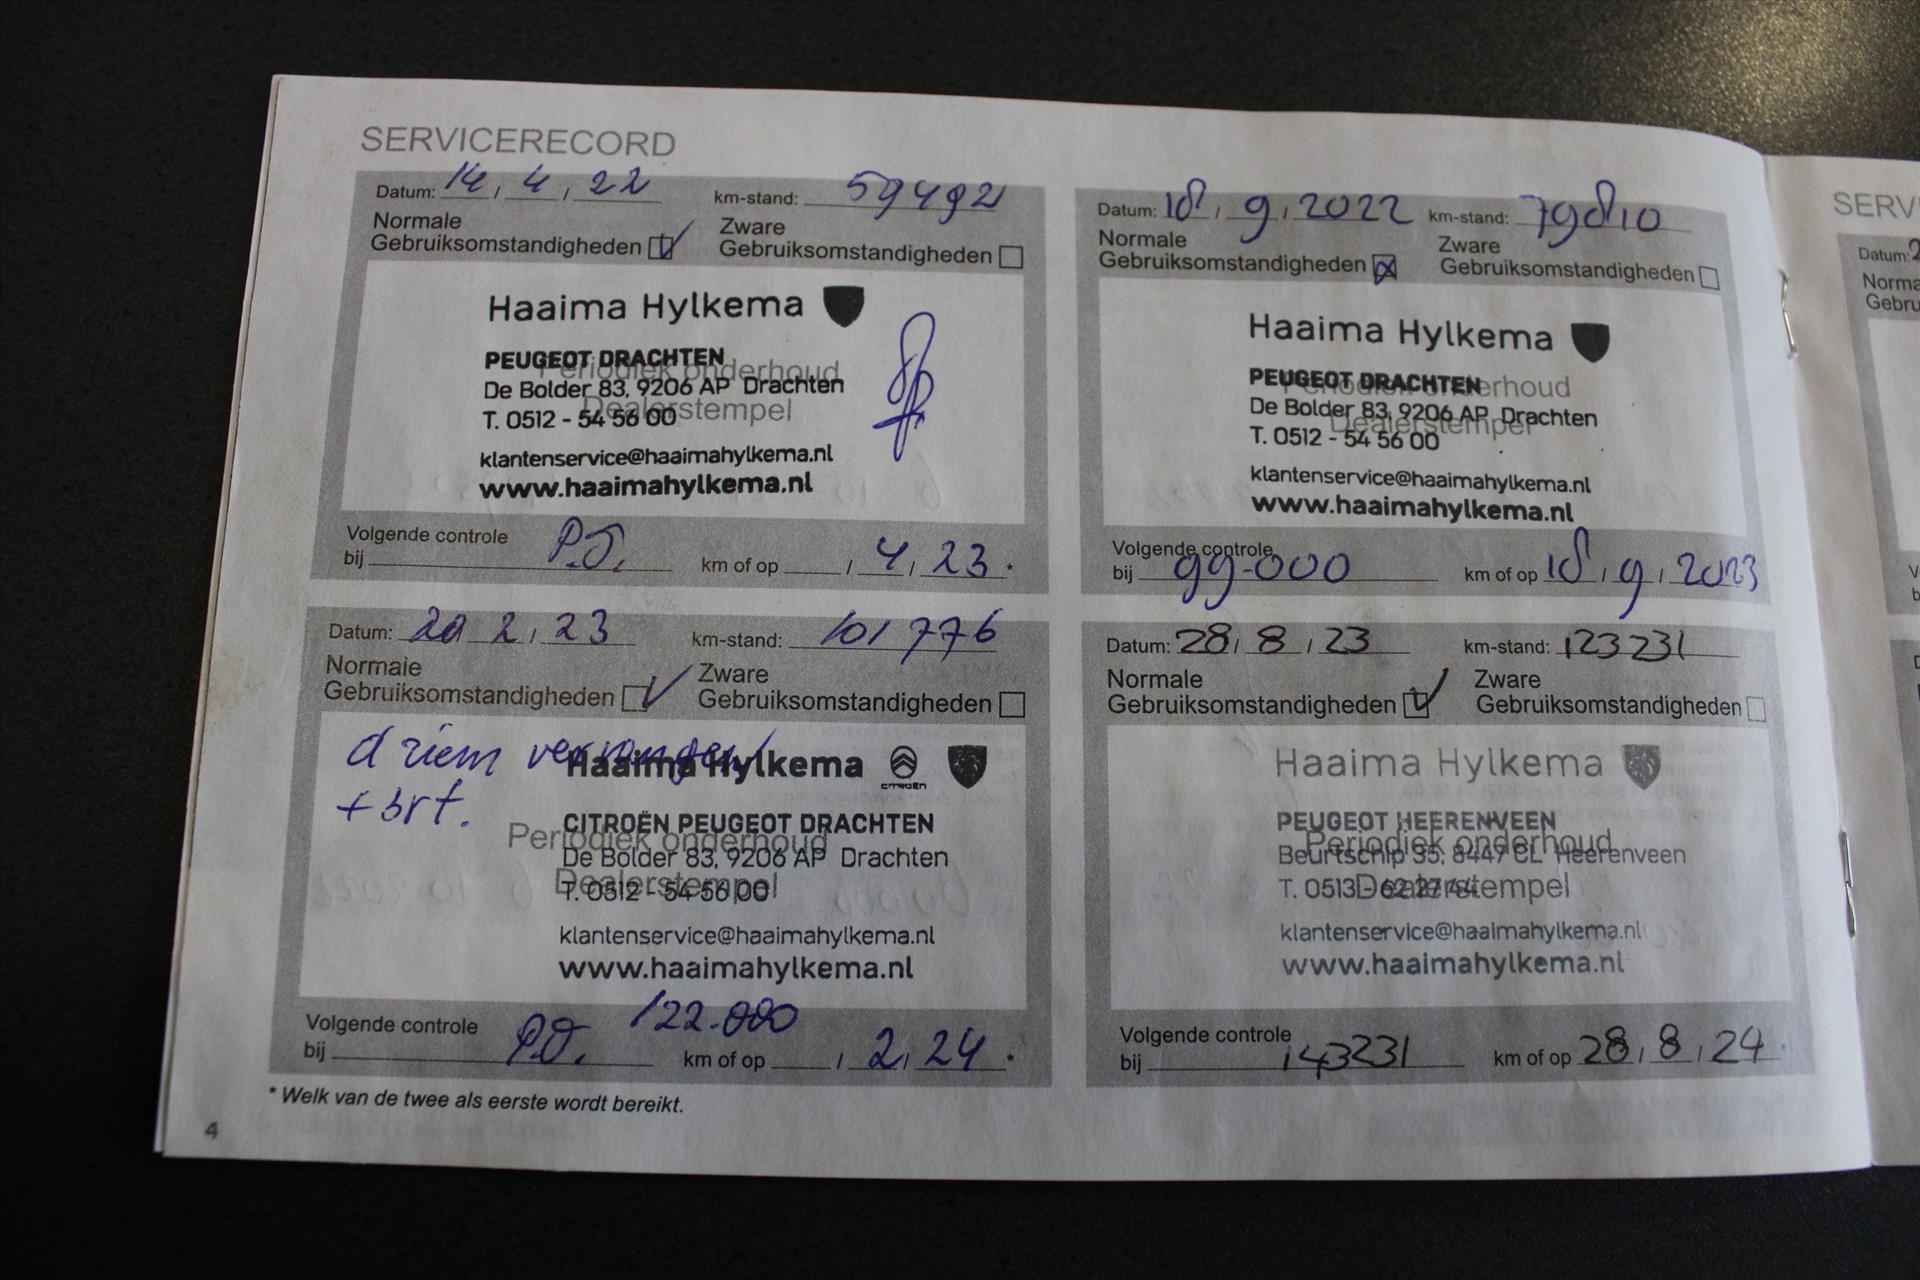 SERVICERECORD
Datum: 14 / 4 / 22 km-stand: 59492
Normale Zware
Gebruiksomstandigheden Gebruiksomstandigheden
Haaima Hylkema
PEUGEOT DRACHTEN
Periodiek onderhoud
De Bolder 83, 9206 AP Drachten
Dealerstempel
T. 0512 - 54 56 00
klantenservice@haaimahylkema.nl
www.haaimahylkema.nl
Volgende controle
bij km of op / 4 / 23
Datum: 18 / 9 / 2022 km-stand: 79810
Normale Zware
Gebruiksomstandigheden Gebruiksomstandigheden
Haaima Hylkema
PEUGEOT DRACHTEN
Periodiek onderhoud
De Bolder 83, 9206 AP Drachten
Dealerstempel
T. 0512 - 54 56 00
klantenservice@haaimahylkema.nl
www.haaimahylkema.nl
Volgende controle
bij 99-000 km of op 18 / 9 / 2023
Datum: 20 2 / 23 km-stand: 101776
Normale Zware
Gebruiksomstandigheden Gebruiksomstandigheden
d riem vervangen
Haaima Hylkema CITROËN
+ brt.
CITROËN PEUGEOT DRACHTEN
Periodiek onderhoud
De Bolder 83, 9206 AP Drachten
Dealerstempel
T. 0512 - 54 56 00
klantenservice@haaimahylkema.nl
www.haaimahylkema.nl
122.000
Volgende controle
bij km of op / 2 / 24
Datum: 28 / 8 / 23 km-stand: 123231
Normale Zware
Gebruiksomstandigheden Gebruiksomstandigheden
Haaima Hylkema
PEUGEOT HEERENVEEN
Periodiek onderhoud
Beurtschip 35, 8447 CL Heerenveen
Dealerstempel
T. 0513 - 62 27 44
klantenservice@haaimahylkema.nl
www.haaimahylkema.nl
Volgende controle
bij 143231 km of op 28 / 8 / 24
* Welk van de twee als eerste wordt bereikt.
4
SERV
Datum: 2
Norma
Gebru